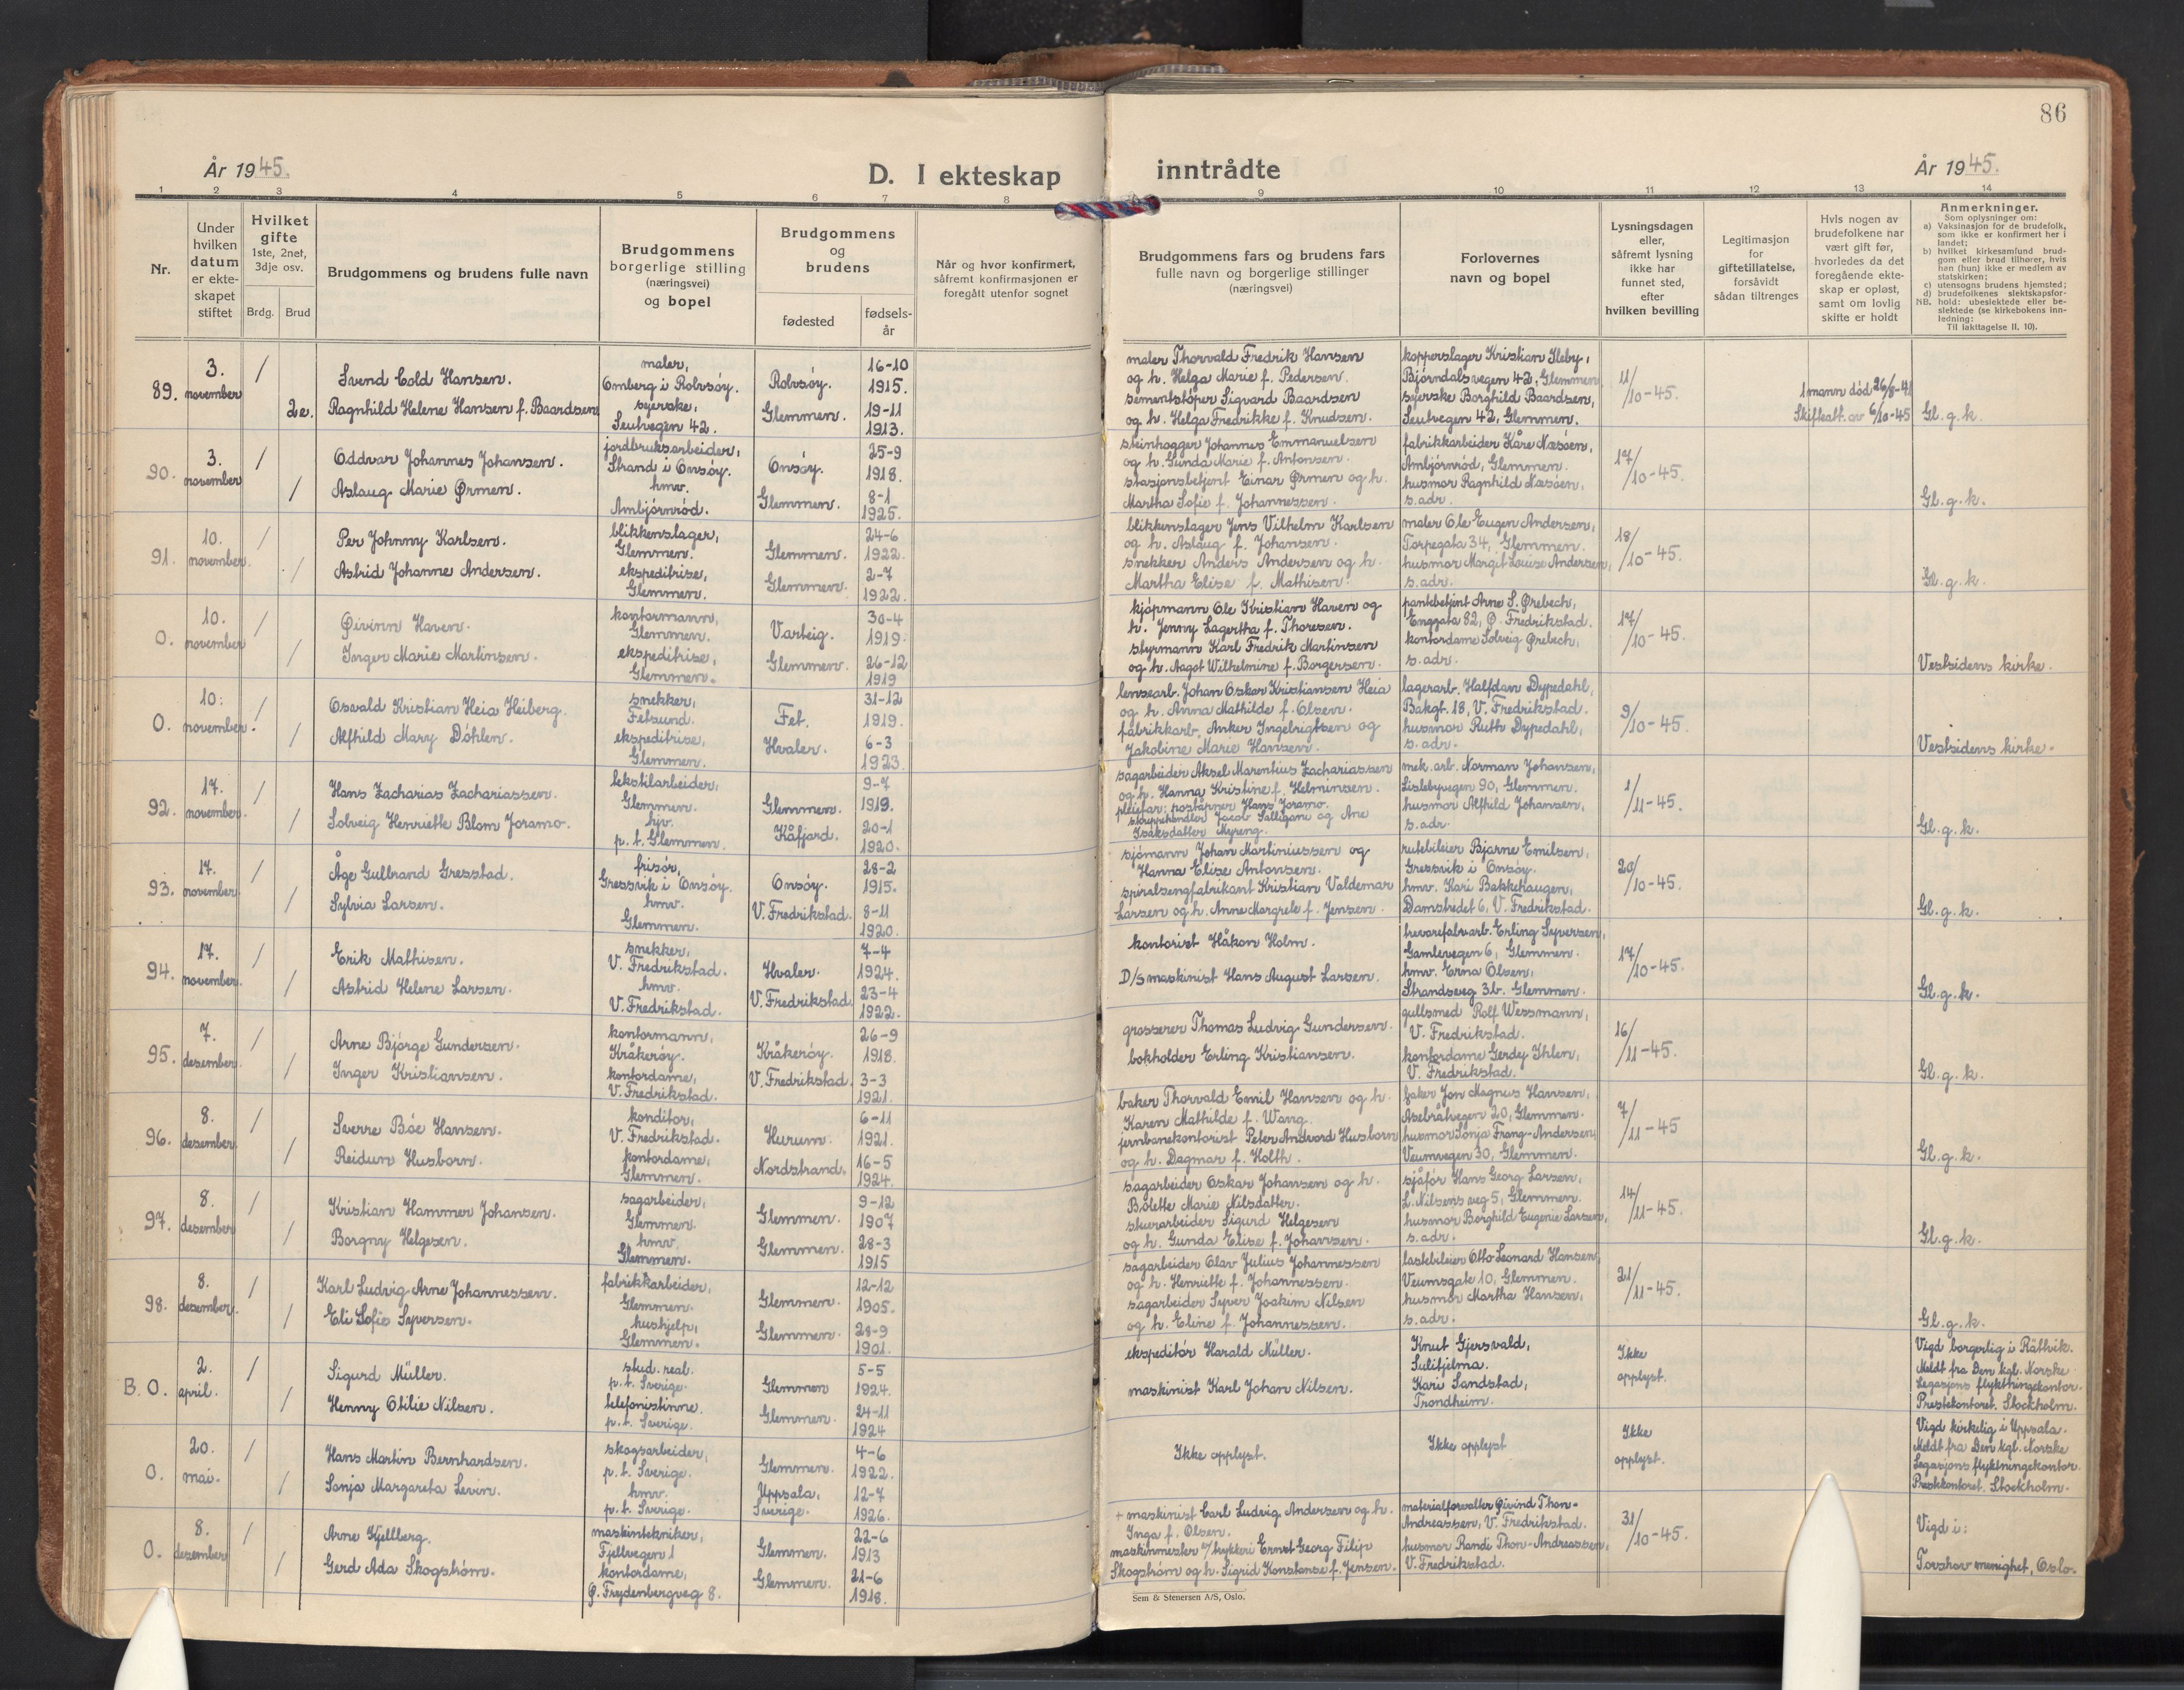 86
År 1945.
D. I ekteskap inntrådte
År 1945.
1 2 3 4 5 6 7 8 9 10 11 12 13 14
Nr.
Under hvilken datum er ekteskapet stiftet
Hvilket gifte 1ste, 2net, 3dje osv.
Brdg. Brud
Brudgommens og brudens fulle navn
Brudgommens borgerlige stilling (næringsvei) og bopel
Brudgommens og brudens
fødested
fødsels-år
Når og hvor konfirmert, såfremt konfirmasjonen er foregått utenfor sognet
Brudgommens fars og brudens fars fulle navn og borgerlige stillinger (næringsvei)
Forlovernes navn og bopel
Lysningsdagen eller, såfremt lysning ikke har funnet sted, efter hvilken bevilling
Legitimasjon for giftetillatelse, forsåvidt sådan tiltrenges
Hvis nogen av brudefolkene har vært gift før, hvorledes da det foregående ekteskap er opløst, samt om lovlig skifte er holdt
Anmerkninger.
Som oplysninger om:
a) Vaksinasjon for de brudefolk, som ikke er konfirmert her i landet;
b) hvilket kirkesamfund brudgom eller brud tilhører, hvis han (hun) ikke er medlem av statskirken;
c) utensogns brudens hjemsted;
d) brudefolkenes slektskapsforhold: ubeslektede eller beslektede (se kirkebokens innledning:
NB. Til iakttagelse II, 10).
89. 3. november / Svend Cold Hansen. maler, Omberg i Rolvsøy. Rolvsøy. 16-10 1915.
2e. Ragnhild Helene Hansen f. Baardsen syerske, Seutvegen 42. Glemmen. 19-11 1913.
maler Thorvald Fredrik Hansen
og h. Helga Marie f. Pedersen.
sementstøper Sigvard Baardsen
og h. Helga Fredrikke f. Knudsen.
kopperslager Kristian Sleby,
Bjørndalsvegen 42, Glemmen
syerske Borghild Baardsen,
Seutvegen 42, Glemmen.
11/10-45.
1 mann død 26/8-41
Skifteatt. av 6/10-45
Gl. g. k.
90. 3. november / Oddvar Johannes Johansen. jordbruksarbeider, Strand i Onsøy. Onsøy. 25-9 1918.
/ Aslaug Marie Ørmen. hmv. Ambjørnrød. Glemmen. 8-1 1925.
steinhogger Johannes Emmanuelsen
og h. Gunda Marie f. Antonsen.
stasjonsbetjent Einar Ørmen og h.
Martha Sofie f. Johannessen.
fabrikkarbeider Kåre Næsøen,
Ambjørnrød, Glemmen.
husmor Ragnhild Næsøen,
s. adr.
17/10-45.
Gl. g. k.
91. 10. november / Per Johnny Karlsen. blikkenslager, Glemmen. Glemmen. 24-6 1922.
/ Astrid Johanne Andersen. ekspeditrise, Glemmen. Glemmen. 2-7 1922.
blikkenslager Jens Vilhelm Karlsen
og h. Aslaug f. Johansen.
snekker Anders Andersen og h.
Martha Elise f. Mathisen.
maler Ole Eugen Andersen,
Torpegata 34, Glemmen.
husmor Margit Louise Andersen,
s. adr.
18/10-45.
Gl. g. k.
0. 10. november / Øivinn Haven. kontormann, Glemmen. Varteig. 30-4 1919.
/ Inger Marie Martinsen. ekspeditrise, Glemmen. Glemmen. 26-12 1919
kjøpmann Ole Kristian Haven og
h. Jenny Lagertha f. Thoresen.
styrmann Karl Fredrik Martinsen
og h. Aagot Wilhelmine f. Borgersen.
pantebetjent Arne S. Ørebech,
Enggata 82, Ø. Fredrikstad.
kontordame Solveig Ørebech,
s. adr.
17/10-45.
Vestsidens kirke.
0. 10. november. / Osvald Kristian Heia Heiberg. snekker, Fetsund. Fet. 31-12 1919.
/ Alfhild Mary Døhlen. ekspeditrise, Glemmen. Hvaler. 6-3 1923.
lensearb. Johan Oskar Kristiansen Heia
og h. Anna Mathilde f. Olsen.
fabrikkarb. Anker Ingebrigtsen og
Jakobine Marie Hansen.
lagerarb. Halfdan Dypedahl,
Bakgt. 18, V. Fredrikstad.
husmor Ruth Dypedahl,
s. adr.
9/10-45.
Vestsidens kirke.
92. 17. november. / Hans Zacharias Zachariassen. tekstilarbeider, Glemmen. Glemmen. 9-7 1919.
/ Solveig Henriette Blom Joramo. hjv. p. t. Glemmen. Kåfjord. 20-1 1920.
sagarbeider Aksel Marentius Zachariassen
og h. Hanna Kristine f. Helminsen.
pleiefar: poståpner Hans Joramo.
Jacob Salligani og Ane
Isaksdatter Myreng.
mek. arb. Norman Johansen,
Lislebyvegen 90, Glemmen.
husmor Alfhild Johansen,
s. adr.
1/11-45.
Gl. g. k.
93. 17. november / Åge Gulbrand Gresstad. frisør, Gressvik i Onsøy. Onsøy. 28-2 1915.
/ Sylvia Larsen. hmv. Glemmen. V. Fredrikstad. 8-11 1920.
sjømann Johan Martiniussen og
Hanna Elise Antonsen.
spiralsengfabrikant Kristian Valdemar
Larsen og h. Anne Margrete f. Jensen.
rutebileier Bjarne Emilsen,
Gressvik i Onsøy.
hmv. Kari Bakkehaugen,
Damstredet 6, V. Fredrikstad.
20/10-45.
Gl. g. k.
94. 17. november. / Erik Mathisen. snekker, V. Fredrikstad. Hvaler. 7-4 1924.
/ Astrid Helene Larsen. hmv. V. Fredrikstad. V. Fredrikstad. 23-4 1922.
kontorist Håkon Holm.
D/S maskinist Hans August Larsen.
trevarefabr.arb. Erling Syversen,
Gamlevegen 6, Glemmen.
hmv. Erna Olsen,
Strandveg 3b. Glemmen.
17/10-45.
Gl. g. k.
95. 7. desember. / Arne Bjørge Gundersen. kontormann, Kråkerøy. Kråkerøy. 26-9 1918.
/ Inger Kristiansen. kontordame, V. Fredrikstad. V. Fredrikstad. 3-3 1921.
grosserer Thomas Ludvig Gundersen.
bokholder Erling Kristiansen.
gullsmed Rolf Wessmann,
V. Fredrikstad.
kontordame Gerdy Ihlen,
V. Fredrikstad.
16/11-45.
Gl. g. k.
96. 8. desember. / Sverre Bøe Hansen. konditor, V. Fredrikstad. Hurum. 6-11 1921.
/ Reidun Husborn. kontordame, Glemmen. Nordstrand. 16-5 1924.
baker Thorvald Emil Hansen og h.
Karen Mathilde f. Wang.
jernbanekontorist Peter Andvord Husborn
og h. Dagmar f. Holth.
baker Jon Magnus Hansen,
Aselråvegen 20, Glemmen.
husmor Sonja Frang-Andersen,
Veumvegen 30, Glemmen.
7/11-45
Gl. g. k.
97. 8. desember / Kristian Hammer Johansen. sagarbeider, Glemmen. Glemmen. 9-12 1907
/ Borgny Helgesen. hmv. Glemmen. Glemmen. 28-3 1915
sagarbeider Oskar Johansen og h.
Bolette Marie Nilsdatter.
stuerarbeider Sigurd Helgesen
og h. Gunda Elise f. Johansen.
sjåfør Hans Georg Larsen,
L. Nilsens veg 5, Glemmen.
husmor Borghild Eugenie Larsen,
s. adr.
14/11-45.
Gl. g. k.
98. 8. desember. / Karl Ludvig Arne Johannessen. fabrikkarbeider, Glemmen. Glemmen. 12-12 1905.
/ Eli Sofie Syversen. hushjelp, Glemmen. Glemmen. 28-9 1901.
sagarbeider Olav Julius Johannessen
og h. Henriette f. Johannessen.
sagarbeider Syver Joakim Nilsen
og h. Eline f. Johannessen.
lastebileier Otto Leonard Hansen,
Veumsgate 10, Glemmen.
husmor Martha Hansen,
s. adr.
21/11-45.
Gl. g. k.
B. 0. 2. april. / Sigurd Müller. stud. real. p. t. Sverige. Glemmen 5-5 1924.
/ Henny Otilie Nilsen. telefonistinne. p. t. Sverige. Glemmen. 24-11 1924
ekspeditør Harald Müller.
maskinist Karl Johan Nilsen.
Knut Gjersvald,
Sulitjelma.
Kari Sandstad,
Trondheim.
Ikke opplyst.
Vigd borgerlig i Rättvik.
Meldt fra Den kgl. Norske
Legasjons flyktningekontor.
Prestekontoret. Stockholm.
0. 20. mai. / Hans Martin Bernhardsen. skogsarbeider, p. t. Sverige. Glemmen. 4-6 1922.
/ Sonja Margareta Levin. hmv. p. t. Sverige. Uppsala, Sverige. 12-7 1926.
Ikke opplyst.
Ikke opplyst
Ikke opplyst.
Vigd kirkelig i Uppsala.
Meldt fra Den kgl. Norske
Legasjons flyktningekontor.
Prestekontoret. Stockholm.
0. 8. desember / Arne Kjellberg. maskintekniker, Fjellvegen 1 Glemmen. 22-6 1913
/ Gerd Ada Skogstrøm. kontordame, Ø. Frydenbergveg 8. Glemmen. 21-6 1918.
+ maskinist Carl Ludvig Andersen og h.
Inga f. Olsen.
maskinmester v/ trykkeri Ernst Georg Filip
Skogstrøm og h. Sigrid Konstanse f. Jensen.
materialforvalter Øivind Thon-
Andreassen, V. Fredrikstad.
husmor Randi Thon-Andreassen,
V. Fredrikstad.
31/10-45.
Vigd i:
Torshov menighet, Oslo.
Sem & Stenersen A/S, Oslo.